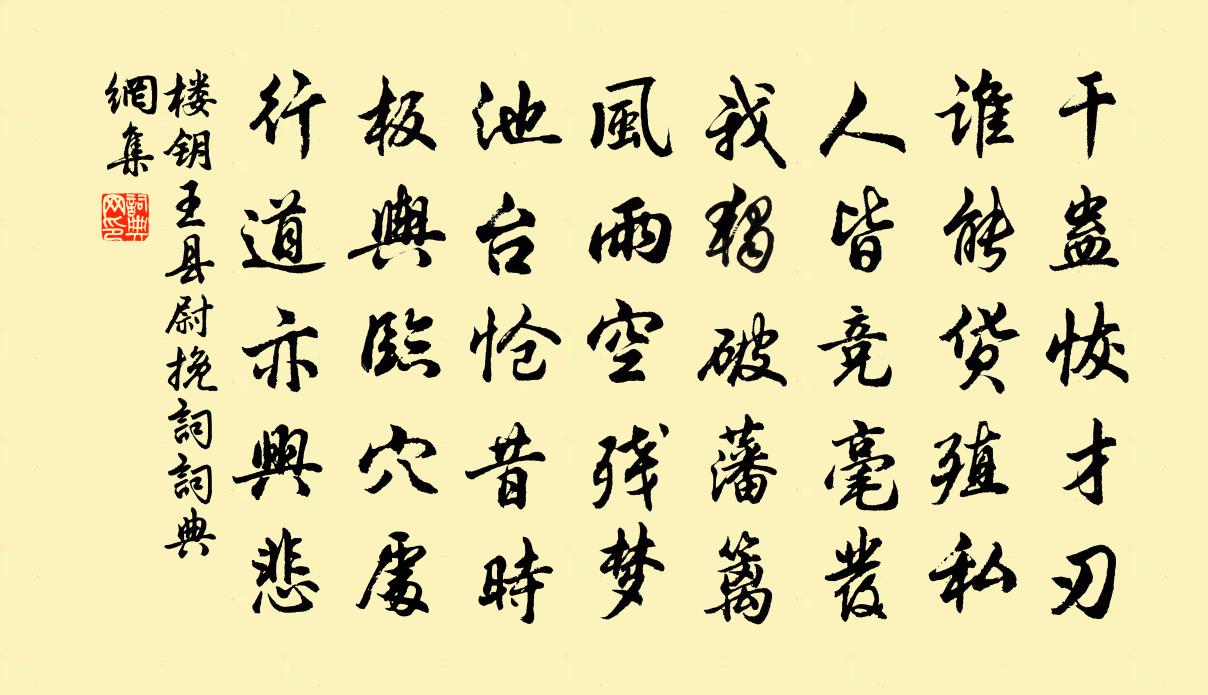 干蛊恢才刃
谁能货殖私
人皆竞毫發
我獨破藩篱
風雨空残梦
池台怆昔時
板輿臨穴處
行道亦興悲
楼钥王县尉挽詞詞典
網集
詞典
网印